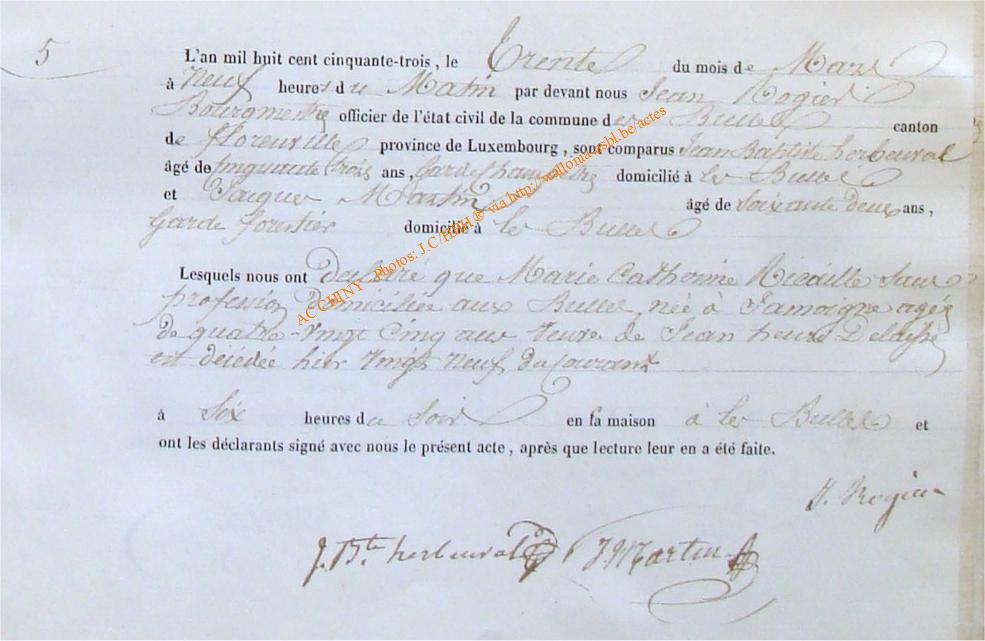 5
L'an mil huit cent cinquante-trois, le Trente du mois de Mars
à Neuf heures du Matin par devant nous Jean Rogier
Bourgmestre officier de l'état civil de la commune des Bulles canton
de florenville province de Luxembourg, sont comparus Jean Baptiste herbeuval
âgé de Cinquante trois ans, Garde Champetre domicilié à les Bulles
et Jacques Martin âgé de Soixante deux ans,
Garde forestier domicilié à les Bulles
Lesquels nous ont declaré que Marie Catherine Ricaille Sans
profession domiciliée aux Bulles, née à Jamoigne agée
de quatre-Vingt Cinq ans Veuve de Jean
est décédée hier Vingt Neuf du Courant
à Six heures du Soir en sa maison à les Bulles et
ont les déclarants signé avec nous le présent acte, après que lecture leur en a été faite.
J. Rogier
J. Bte herbeuval J. Martin
ACCHINY Photos: J.C/HBH® via http://wallonia-asbl.be/actes